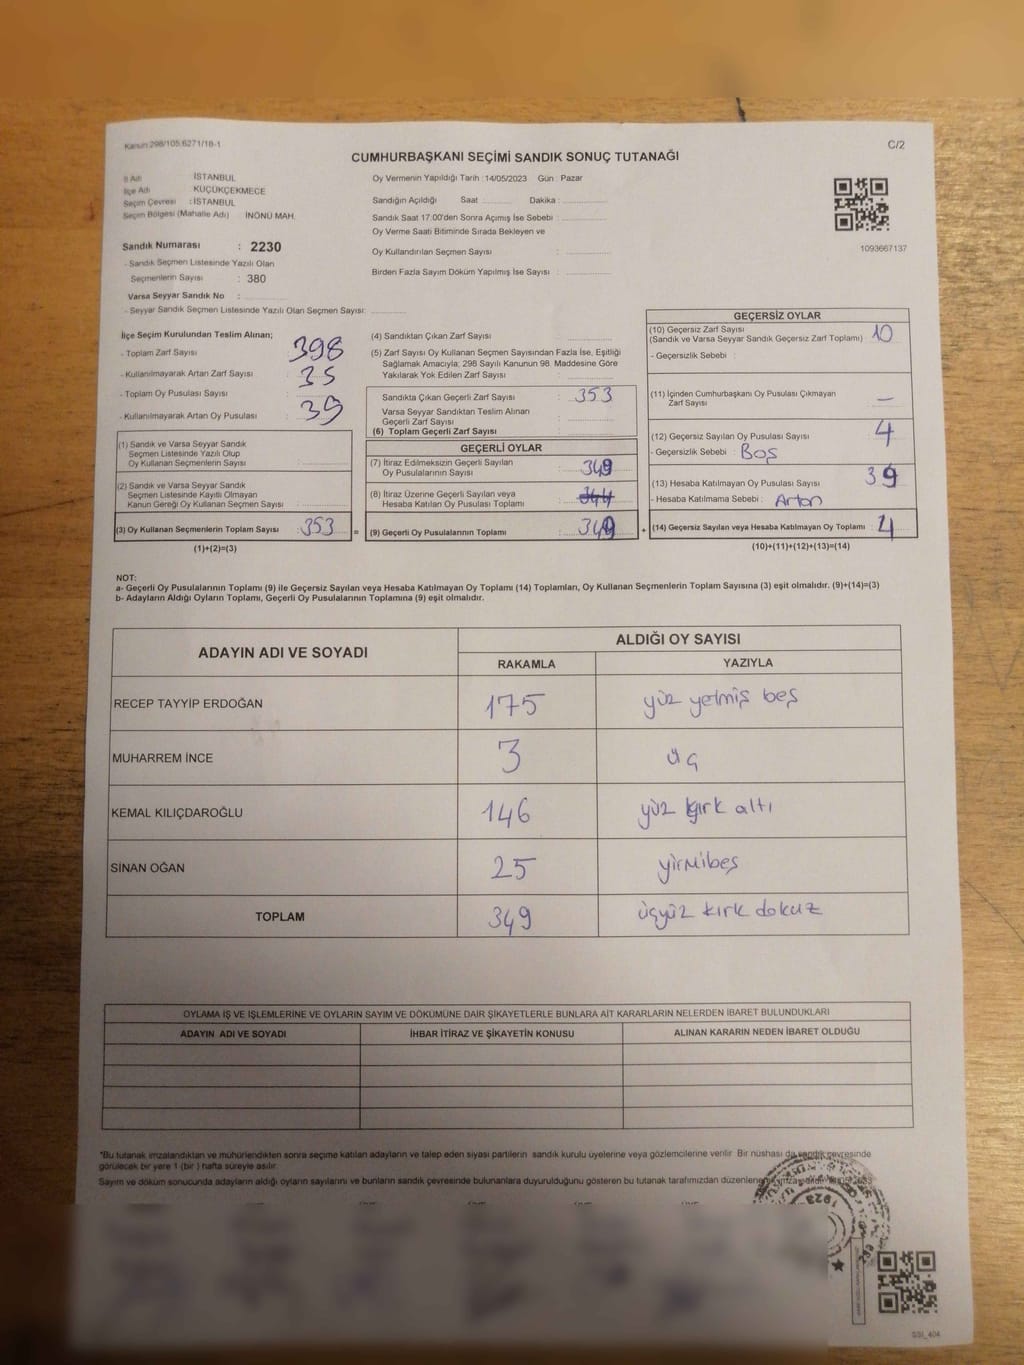 Kanun 298/105,6271/18-1
C/2
CUMHURBAŞKANI SEÇİMİ SANDIK SONUÇ TUTANAĞI
İl Adı İSTANBUL
İlçe Adı KÜÇÜKÇEKMECE
Seçim Çevresi : İSTANBUL
Seçim Bölgesi (Mahalle Adı) İNÖNÜ MAH.
Sandık Numarası : 2230
- Sandık Seçmen Listesinde Yazılı Olan
Seçmenlerin Sayısı : 380
Varsa Seyyar Sandık No :
- Seyyar Sandık Seçmen Listesinde Yazılı Olan Seçmen Sayısı:
Oy Vermenin Yapıldığı Tarih :14/05/2023 Gün : Pazar
Sandığın Açıldığı Saat Dakika :
Sandık Saat 17.00'den Sonra Açımış İse Sebebi :
Oy Verme Saati Bitiminde Sırada Bekleyen ve
Oy Kullandırılan Seçmen Sayısı :
Birden Fazla Sayım Döküm Yapılmış İse Sayısı :
1093667137
İlçe Seçim Kurulundan Teslim Alınan;
- Toplam Zarf Sayısı : 398
- Kullanılmayarak Artan Zarf Sayısı : 35
- Toplam Oy Pusulası Sayısı :
- Kullanılmayarak Artan Oy Pusulası : 39
(1) Sandık ve Varsa Seyyar Sandık
Seçmen Listesinde Yazılı Olup
Oy Kullanan Seçmenlerin Sayısı :
(2) Sandık ve Varsa Seyyar Sandık
Seçmen Listesinde Kayıtlı Olmayan
Kanun Gereği Oy Kullanan Seçmen Sayısı :
(3) Oy Kullanan Seçmenlerin Toplam Sayısı : 353 =
(1)+(2)=(3)
(4) Sandıktan Çıkan Zarf Sayısı :
(5) Zarf Sayısı Oy Kullanan Seçmen Sayısından Fazla İse, Eşitliği
Sağlamak Amacıyla; 298 Sayılı Kanunun 98. Maddesine Göre
Yakılarak Yok Edilen Zarf Sayısı :
Sandıkta Çıkan Geçerli Zarf Sayısı : 353
Varsa Seyyar Sandıktan Teslim Alınan
Geçerli Zarf Sayısı :
(6) Toplam Geçerli Zarf Sayısı :
GEÇERLİ OYLAR
(7) İtiraz Edilmeksizin Geçerli Sayılan
Oy Pusulalarının Sayısı : 349
(8) İtiraz Üzerine Geçerli Sayılan veya
Hesaba Katılan Oy Pusulası Toplamı : 344
(9) Geçerli Oy Pusulalarının Toplamı : 349 +
GEÇERSİZ OYLAR
(10) Geçersiz Zarf Sayısı : 10
(Sandık ve Varsa Seyyar Sandık Geçersiz Zarf Toplamı)
- Geçersizlik Sebebi :
(11) İçinden Cumhurbaşkanı Oy Pusulası Çıkmayan
Zarf Sayısı : —
(12) Geçersiz Sayılan Oy Pusulası Sayısı : 4
- Geçersizlik Sebebi : Boş
(13) Hesaba Katılmayan Oy Pusulası Sayısı : 39
- Hesaba Katılmama Sebebi : Artan
(14) Geçersiz Sayılan veya Hesaba Katılmayan Oy Toplamı : 4
(10)+(11)+(12)+(13)=(14)
NOT:
a- Geçerli Oy Pusulalarının Toplamı (9) ile Geçersiz Sayılan veya Hesaba Katılmayan Oy Toplamı (14) Toplamları, Oy Kullanan Seçmenlerin Toplam Sayısına (3) eşit olmalıdır. (9)+(14)=(3)
b- Adayların Aldığı Oyların Toplamı, Geçerli Oy Pusulalarının Toplamına (9) eşit olmalıdır.
ADAYIN ADI VE SOYADI
ALDIĞI OY SAYISI
RAKAMLA YAZIYLA
RECEP TAYYİP ERDOĞAN 175 yüz yetmiş beş
MUHARREM İNCE 3 üç
KEMAL KILIÇDAROĞLU 146 yüz kırk altı
SİNAN OĞAN 25 yirmibeş
TOPLAM 349 üçyüz kırk dokuz
OYLAMA İŞ VE İŞLEMLERİNE VE OYLARIN SAYIM VE DÖKÜMÜNE DAİR ŞİKAYETLERLE BUNLARA AİT KARARLARIN NELERDEN İBARET BULUNDUKLARI
ADAYIN ADI VE SOYADI İHBAR İTİRAZ VE ŞİKAYETİN KONUSU ALINAN KARARIN NEDEN İBARET OLDUĞU
*Bu tutanak imzalandıktan ve mühürlendikten sonra seçime katılan adayların ve talep eden siyasi partilerin sandık kurulu üyelerine veya gözlemcilerine verilir. Bir nüshası da sandık çevresinde
görülecek bir yere 1 (bir ) hafta süreyle asılır.
Sayım ve döküm sonucunda adayların aldığı oyların sayılarını ve bunların sandık çevresinde bulunanlara duyurulduğunu gösteren bu tutanak tarafımızdan
1923
SSI_404